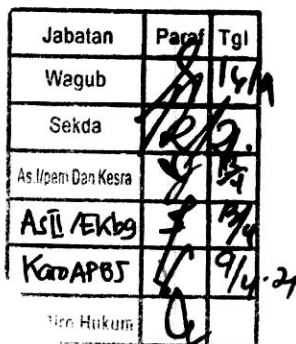 Jabatan Paraf Tgl
Wagub
Sekda
As.I/pem Dan Kesra
As II /EKbg 13/4
Karo APBJ 9/4-21
Hukum